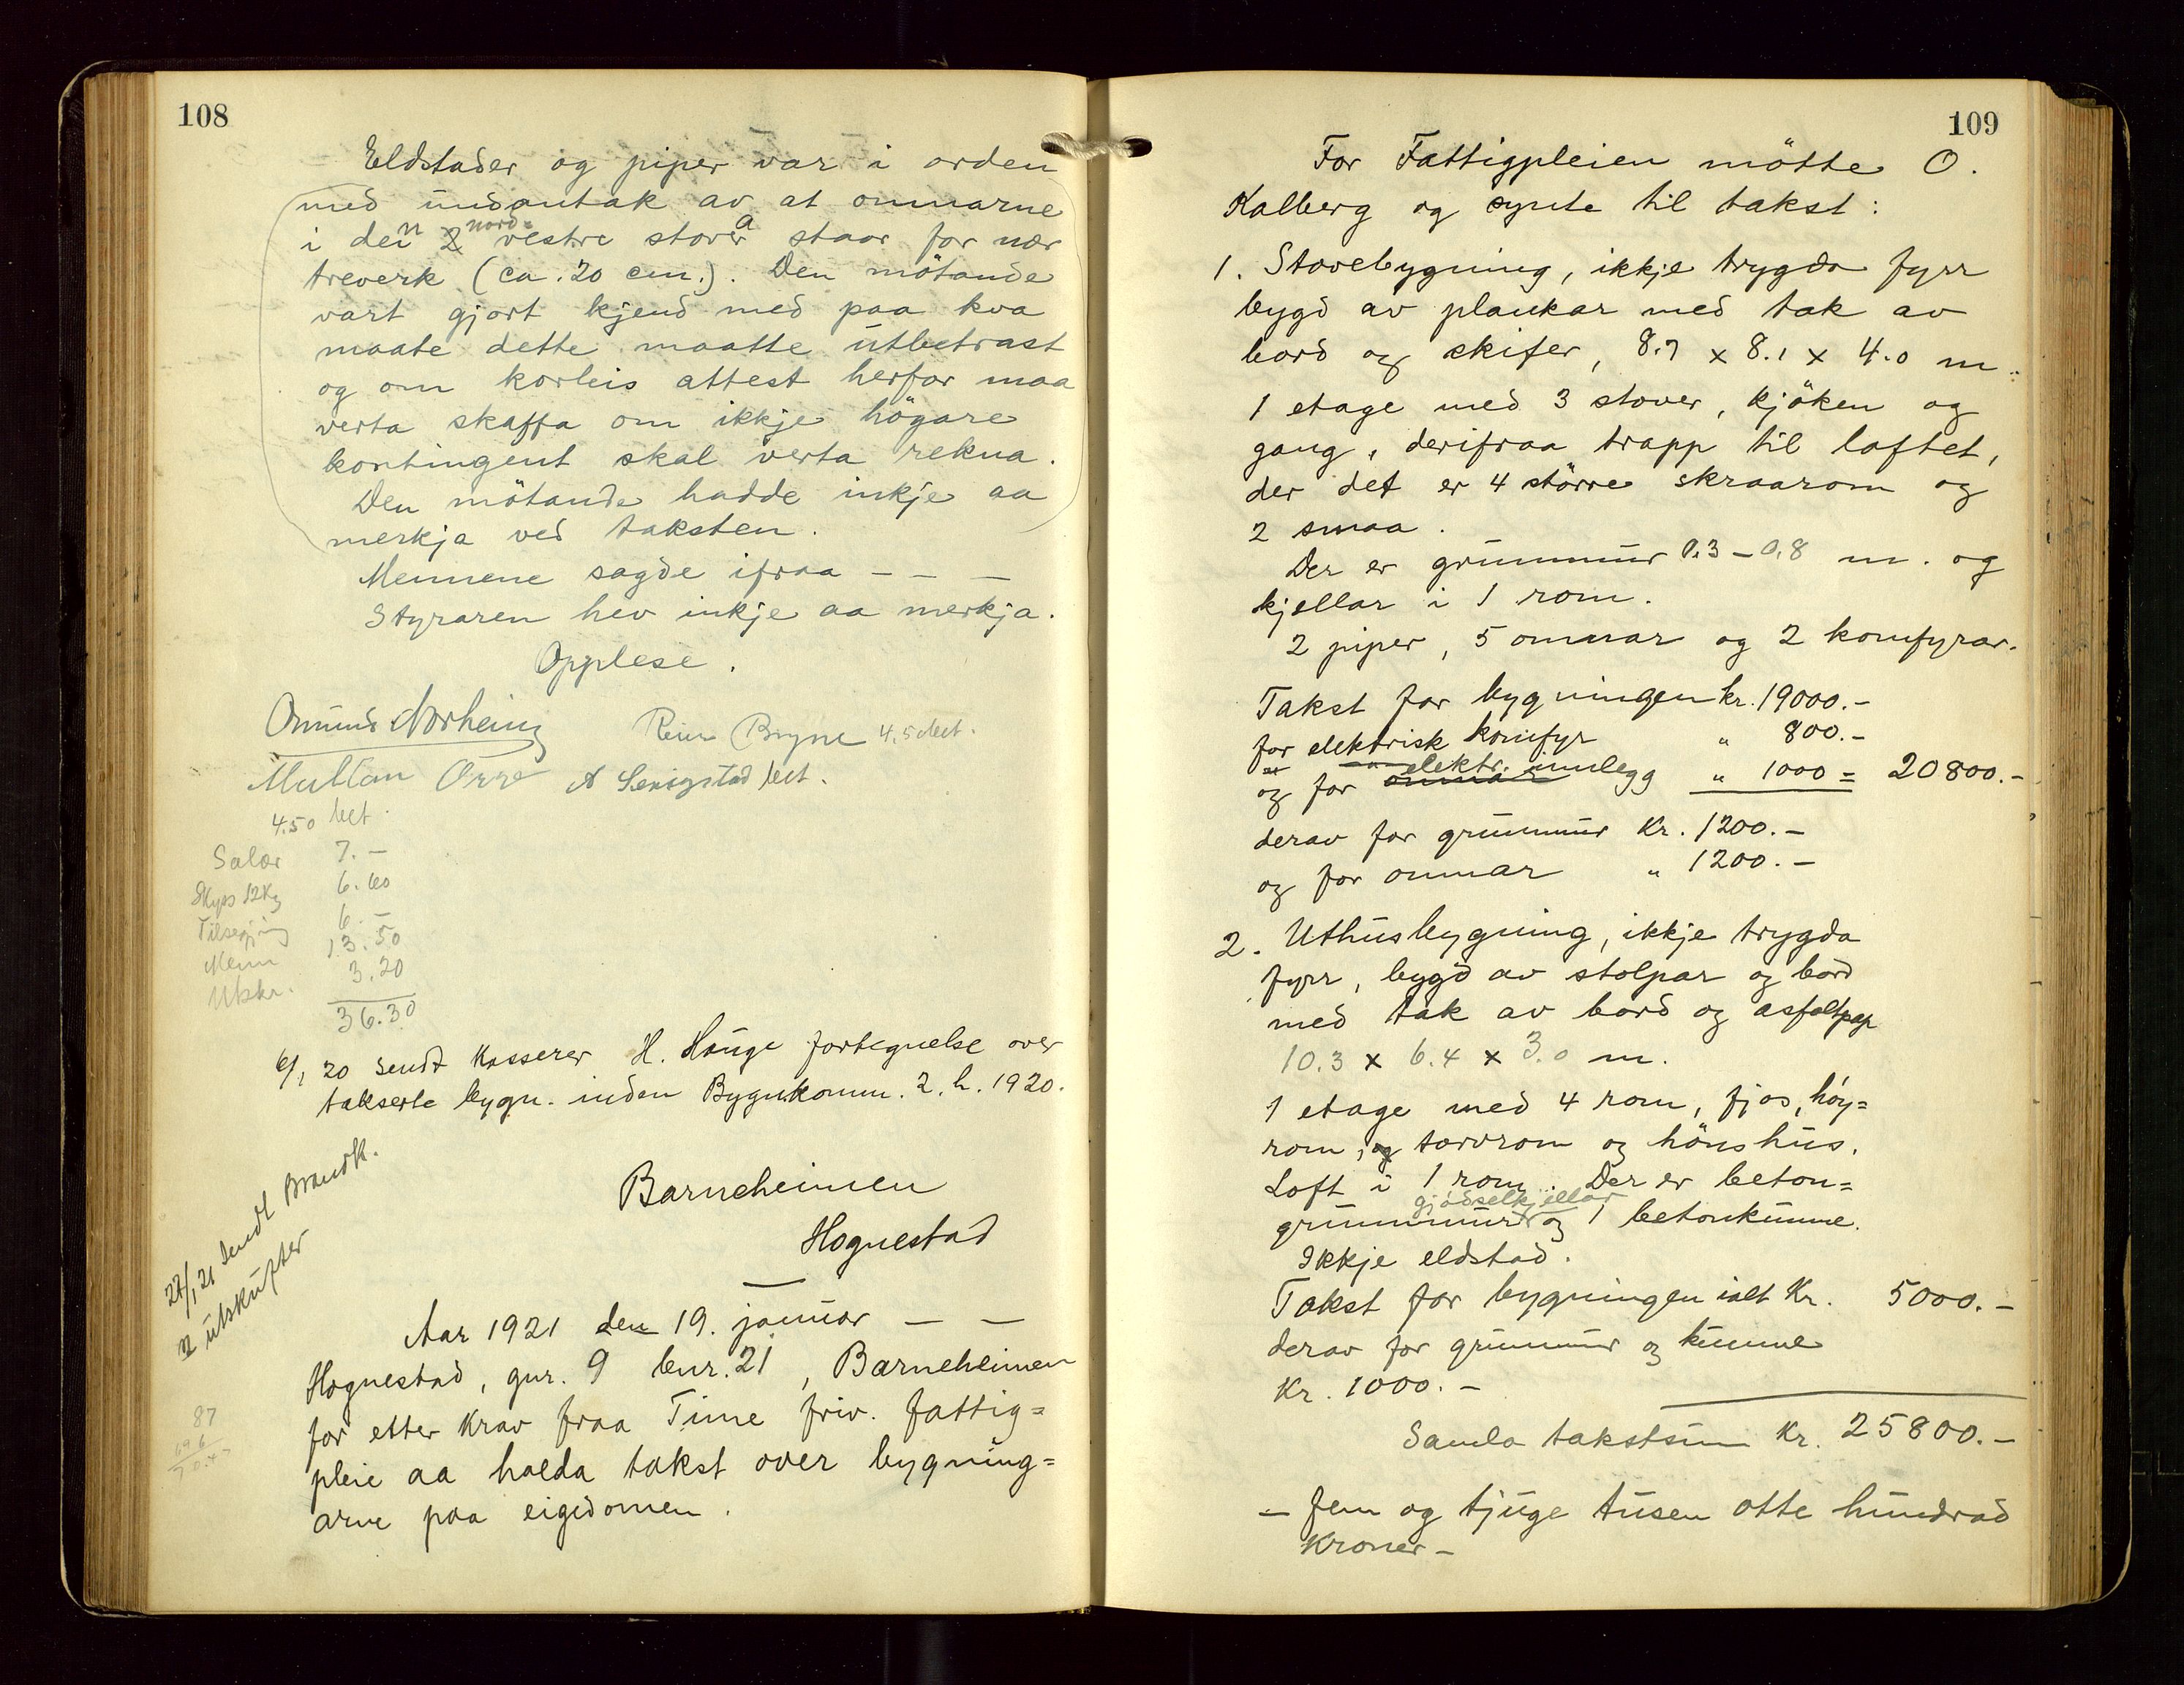 108
Eldstader og piper var i orden
med undantak av at omnarne
i den nord-vestre stova staar for nær
treverk (ca. 20 cm.). Den mötande
vart gjort kjend med paa kva
maate dette maatte utbetrast
og om korleis attest herfor maa
verta skaffa om ikkje högare
kontingent skal verta rekna.
Den mötande hadde inkje aa
merkja ved taksten.
Mennene sagde ifraa – – –
Styraren hev inkje aa merkja.
Opplese.
Omund Norheim Reier Bryne 4.50 bet.
Orre A Serigstad bet.
4.50 bet.
Salær 7.–
Skyss 12 Kg 6.60
Tilsegjing 6.–
Menn 13.50
Utskr. 3.20
36.30
6/1 20 sendt Kasserer H. Hauge fortegnelse over
takserte bygn. inden Bygnkomm. 2. h. 1920.
27/1 21 sendt Brandk.
2 utskrifter
Barneheimen
Hognestad
Aar 1921 den 19. januar – –
Hognestad, gnr. 9 bnr. 21, Barneheimen
for etter krav fraa Time friv. fattig=
pleie aa halda takst over bygning=
arne paa eigedomen.
87
696
109
For Fattigpleien mötte O.
Kalberg og synte til takst:
1. Stovebygning, ikkje trygda fyrr
bygd av plankar med tak av
bord og skifer, 8.7 x 8.1 x 4.0 m.
1 etage med 3 stover, kjöken og
gang, derifraa trapp til loftet,
der det er 4 större skraarom og
2 smaa.
Der er grunnmur 0.3 – 0.8 m. og
kjellar i 1 rom.
2 piper, 5 omnar og 2 komfyrar.
Takst for bygningen kr. 19000.–
for elektrisk komfyr " 800.–
og for omnar elektr. innlegg " 1000 = 20800.–
derav for grunnmur Kr. 1200.–
og for omnar " 1200.–
2. Uthusbygning, ikkje trygda
fyrr, bygd av stolpar og bord
med tak av bord og asfaltpap
10.3 x 6.4 x 3.0 m.
1 etage med 4 rom, fjos, höy=
rom, og torvrom og hönshus.
Loft i 1 rom. Der er beton=
gjödselkjellar
grunnmur og 1 betonkumme.
Ikkje eldstad.
Takst for bygningen ialt Kr. 5000.–
derav for grunnmur og kumme
Kr. 1000.–
Samla takstsum Kr. 25800.–
– fem og tjuge tusen otte hundrad
Kroner –